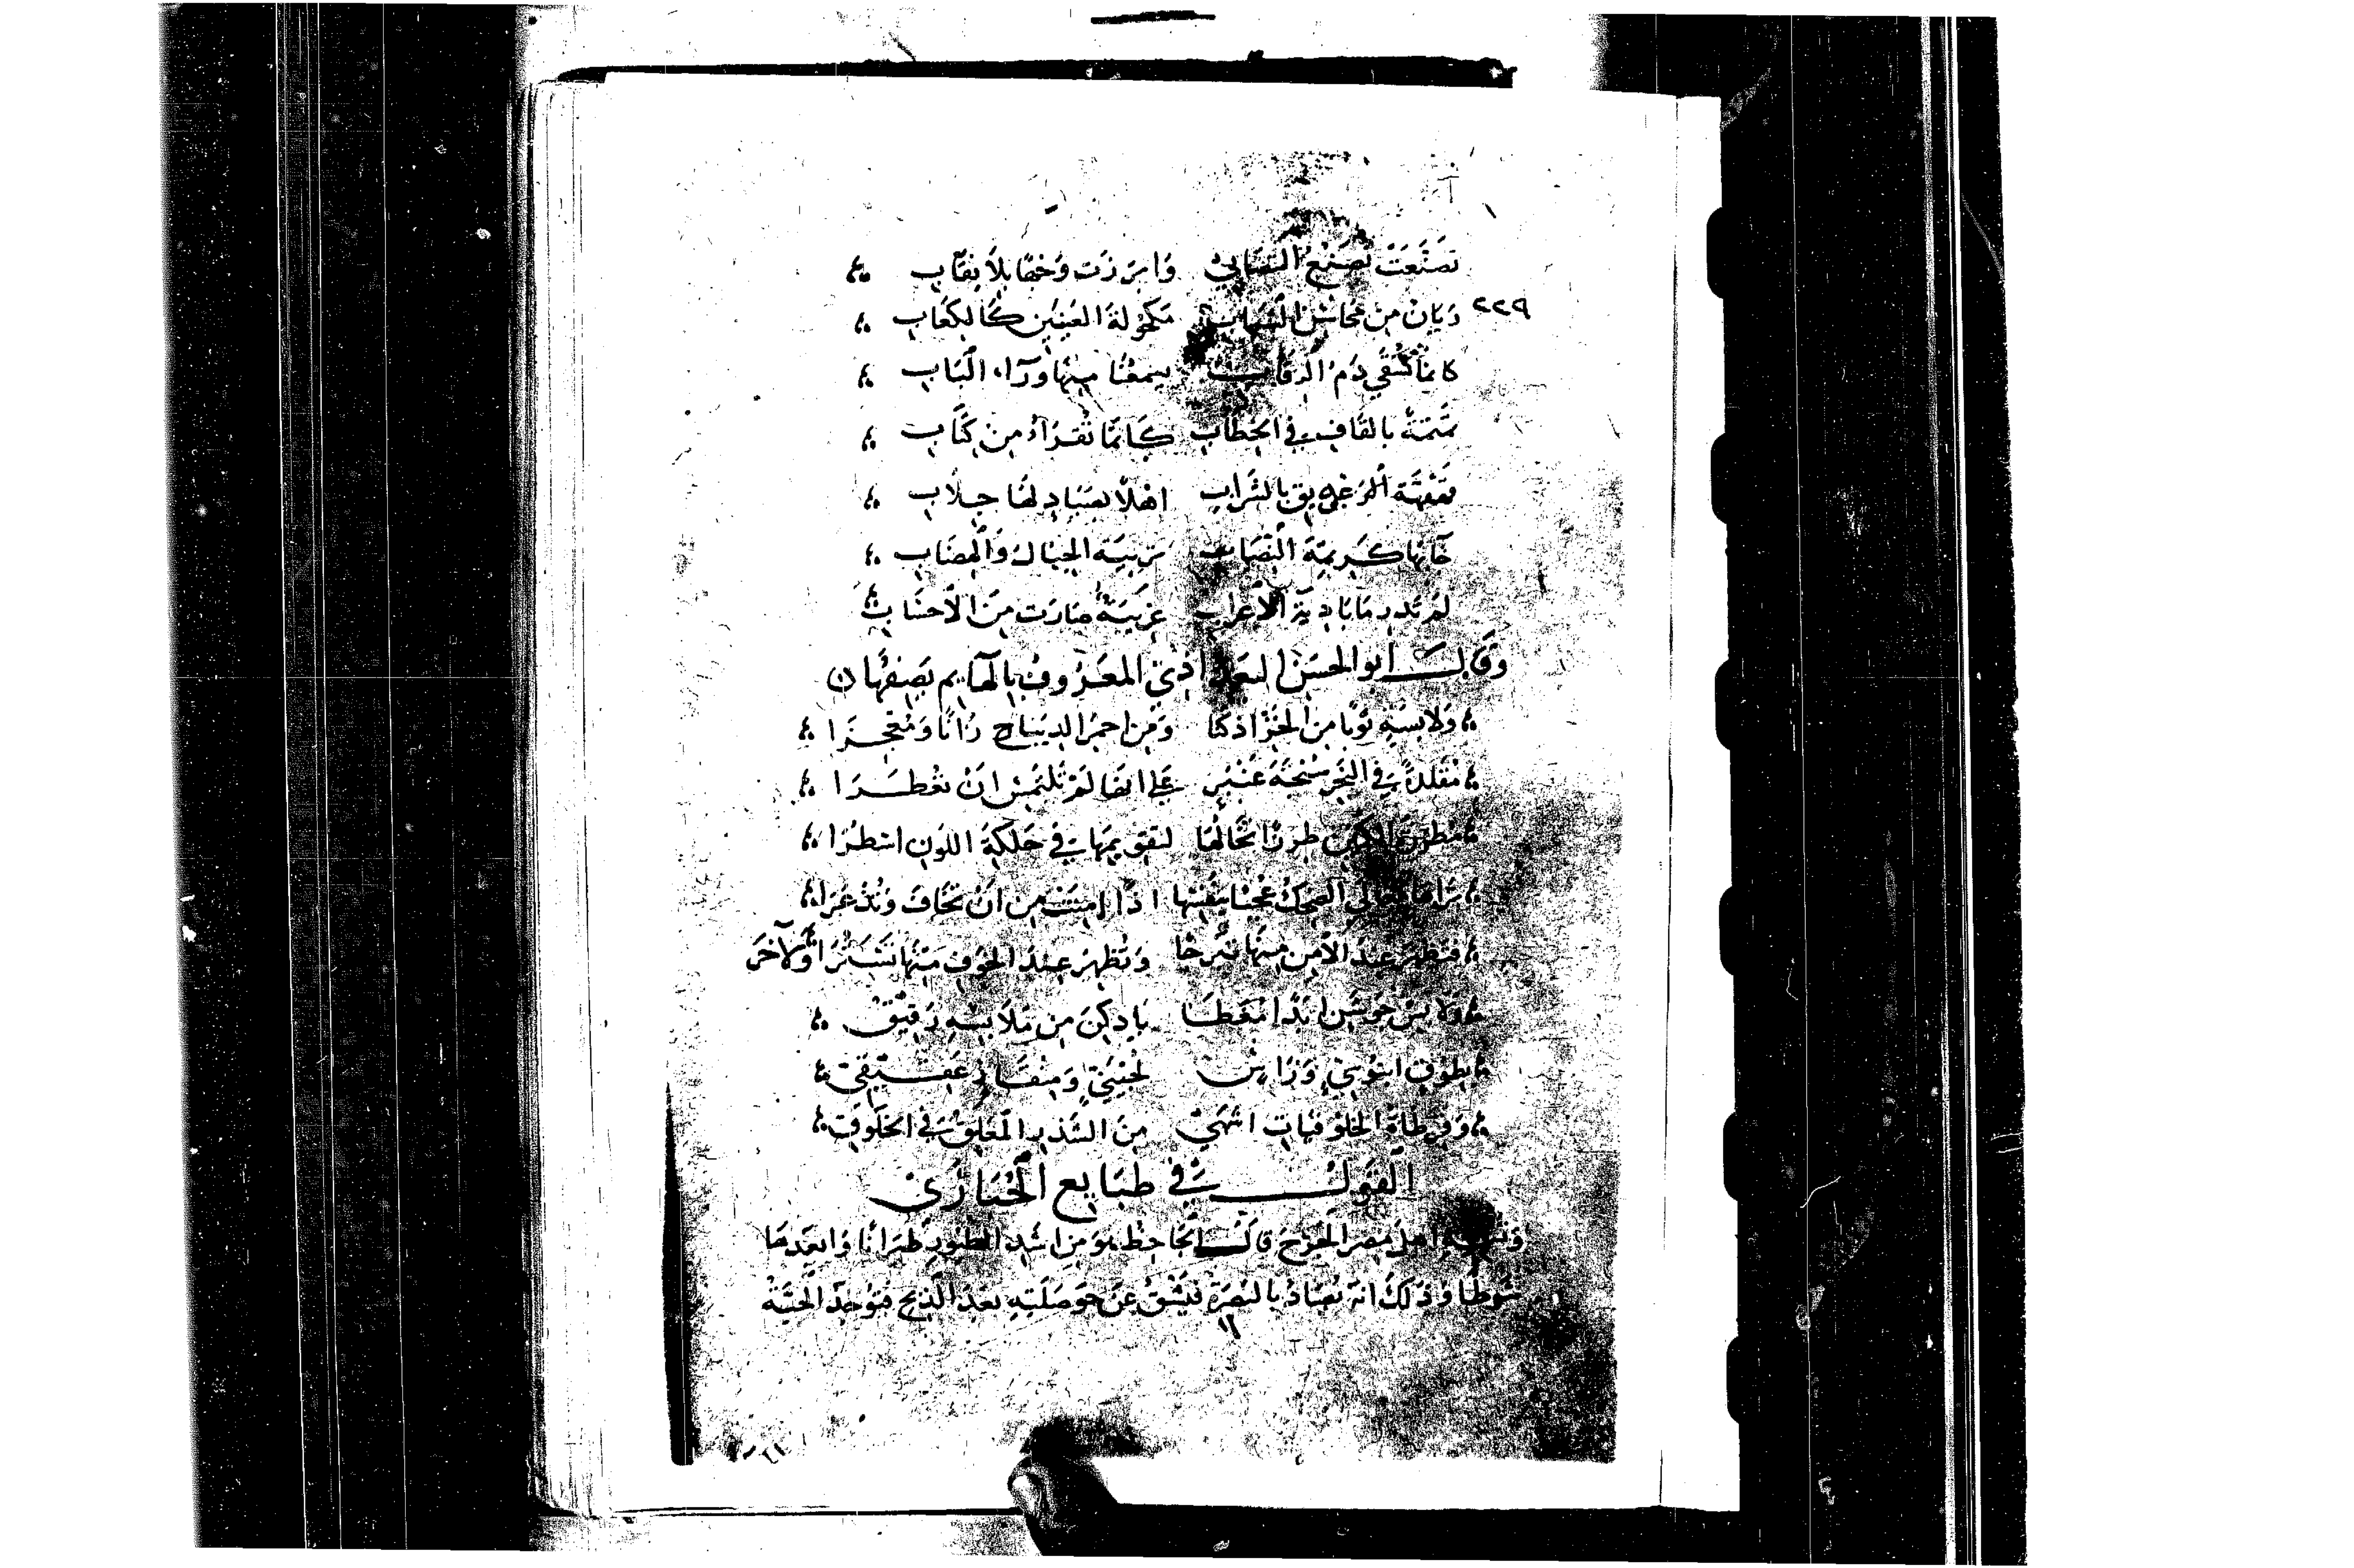 تصنعت تصنع التصابي وابرزت وجها بلا نقاب
٢٢٩ ريان من محاسن الشباب مكحولة العينين كالكعاب
كانما تسقى دم الرقاب يسمعنا منها ورآء الباب
تمتمة بالقاف في الخطاب كانما تقرأ من كتاب
قهقهة الابريق بالشراب اهلا بصياد لها جلاب
جآء بها كريمة النصاب ربيبة الجبال والهضاب
لم تدر ما بادية الأعراب غريبة صارت من الأحباب
وقال ابو الحسن البغدادي المعروف بالهايم يصفها
ولابسة ثوبا من الخز ادكنا ومن احمر الديباج رانا ومعجرا
مقلدة في النحر سبحة عنبر على انها لم تلتمس ان تعطرا
مطرزة الكمين طرزا تخالها لتقويمها في حلكة اللون اسطرا
تراها الضحك عجبا بنفسها اذا امنت من ان تخاف وتذعرا
فتظهر عند الأمن منها تبرجا وتظهر عند الخوف منها تسترا ولآخر
ولابس جوشن ابدا بادكن من ملابسه رقيق
بطوق ابنوسي وراس لجيني ومنقار عقيقي
اشهى من الشذر المعلق في الحلوق
القول في طبايع الحبارى
اهل مصر الحبرج قال الجاحظ هو من اشد الطيور طيرانا وابعدها
شوطا وذلك انه تصاد بالبصرة فيشق عن حوصلته بعد الذبح فتوجد الحبة